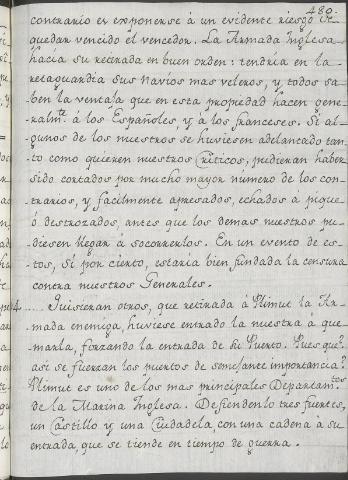 480.
contrario es exponerse á un evidente riesgo de
quedar vencido el vencedor. La Armada Inglesa
hacía su retirada en buen orden: tendria en la
retaguardia sus Navíos mas veleros, y todos sa-
ben la ventaja que en esta propiedad hacen gene-
ralmte. á los Españoles, y á los franceses. Si al-
gunos de los nuestros se huviesen adelantado tan-
to como quieren nuestros criticos, pudieran háber
sido cortados por mucho mayor número de los con-
trarios, y facilmente apresados, echados a pique
ó destrozados, antes que los demas nuestros pu-
diesen llegar á socorrerlos. En un evento de és-
tos, Sí por cierto, estaria bien fundada la censura
contra nuestros Generales.
4.... Quisieran otros, que retirada á Plimut la Ar-
mada enemiga, huviese entrado la nuestra á que-
marla, forzando la entrada de su Puerto. Pues qué?
asi se fuerzan los puertos de semejante importancia?
Plimut es uno de los mas principales Departamtos.
de la Marina Inglesa. Defiendenlo tres fuertes,
un Castillo y una Ciudadela, con una cadena á su
entrada, que se tiende en tiempo de guerra.